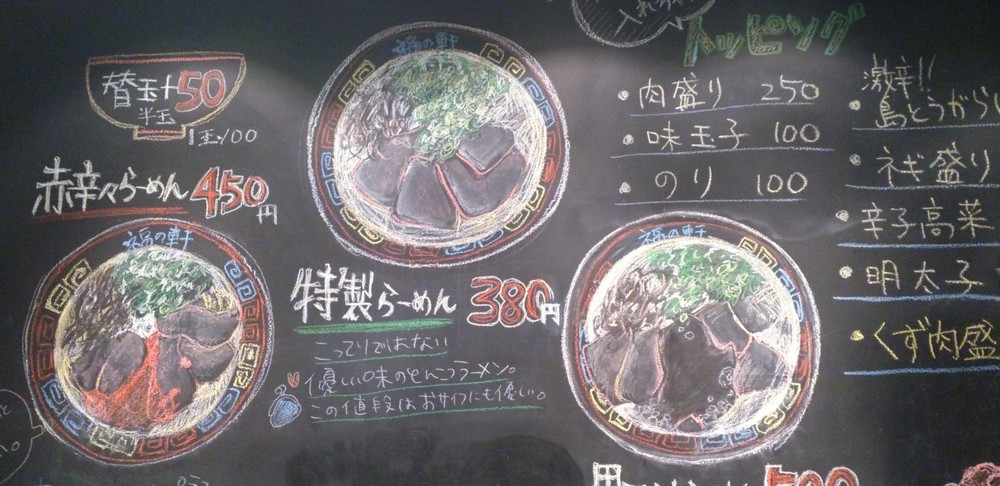 替玉+50
半玉
1玉100
赤辛々らーめん 450円
福の軒
福の軒
特製らーめん 380円
こってりではない
優しい味のとんこつラーメン。
この値段はおサイフにも優しい。
福の軒
トッピング
・肉盛り 250
・味玉子 100
・のり 100
激辛!!
島とうがらし
・ネギ盛り
・辛子高菜
・明太子
・くず肉盛